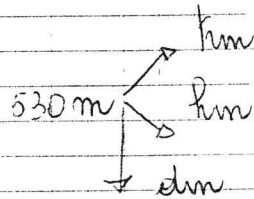 km
530 m
hm
dm